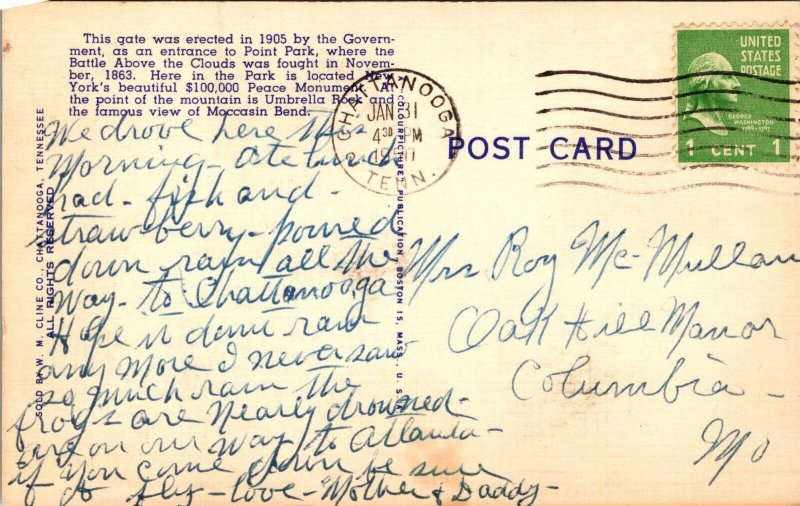 This gate was erected in 1905 by the Govern-
ment, as an entrance to Point Park, where the
Battle Above the Clouds was fought in Novem-
ber, 1863. Here in the Park is located New
York's beautiful $100,000 Peace Monument. At
the point of the mountain is Umbrella Rock and
the famous view of Moccasin Bend.
SOLD BY W. M. CLINE CO., CHATTANOOGA, TENNESSEE
ALL RIGHTS RESERVED
COLOURPICTURE PUBLICATION, BOSTON 15, MASS., U. S. A.
CHATTANOOGA
JAN 31
4 30 PM
TENN.
POST CARD
UNITED
STATES
POSTAGE
GEORGE
WASHINGTON
1789-1797
1 CENT 1
We drove here this
Morning - ate lunch
had - fish and
strawberry - poured
down rain all the
way - to Chattanooga
Hope it dont rain
any more I never saw
so much rain the
frogs are nearly drowned -
are on our way to Atlanta -
if you come down be sure
to fly - love - Mother & Daddy -
Mrs Roy Mc-Mullan
Oak Hill Manor
Columbia -
Mo